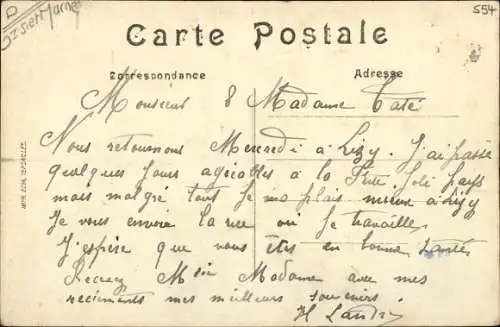 D
Isle et Marne
554
Carte Postale
Correspondance
Adresse
Monsieur & Madame Taté
Nous retournons Mercredi à Lizy. J'ai passé
quelques jours agréables à la Ferté Joli pays
mais malgré tout je me plais mieux à Lizy
Je vous envoie la rue où je travaille
J'espère que vous êtes en bonne santé
Recevez Madame avec mes
mes meilleurs souvenirs.
H Landry
IMP. EDIA. VERSAILLES